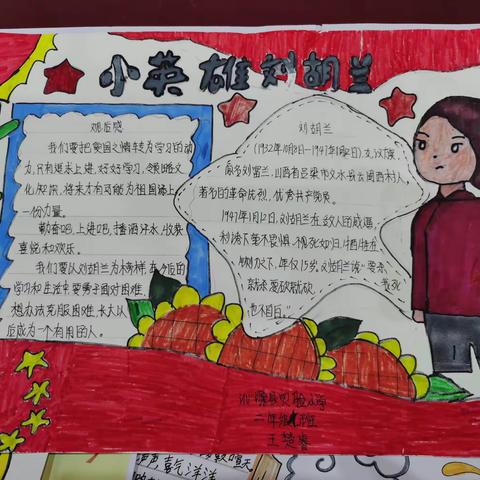 小英雄刘胡兰
观后感
我们要把爱国之情转为学习的动
力,只有进末上进,好好学习,领略文
化知识,将来才有可能为祖国添上
一份力量。
勤奋吧,上进吧,挥洒汗水,收获
喜悦和欢乐。
我们要以刘胡兰为榜样,在今后的
学习和生活中要勇于面对困难,
想办法克服困难,长大以
后成为一个有用的人。
刘胡兰
(1932年10月8日-1947年1月12日),女,汉族,
原名刘富兰,山西省吕梁市文水县云周西村人,
著名的革命先烈,优秀共产党员。
1947年1月12日,刘胡兰在敌人的威逼
利诱下毫不畏惧,视死如归,牺牲在
铡刀之下,年仅15岁。刘胡兰说:要杀
就杀要砍就砍,我死
也不自白。"
实验小学
二年级 班
王楚睿
声,喜气洋洋